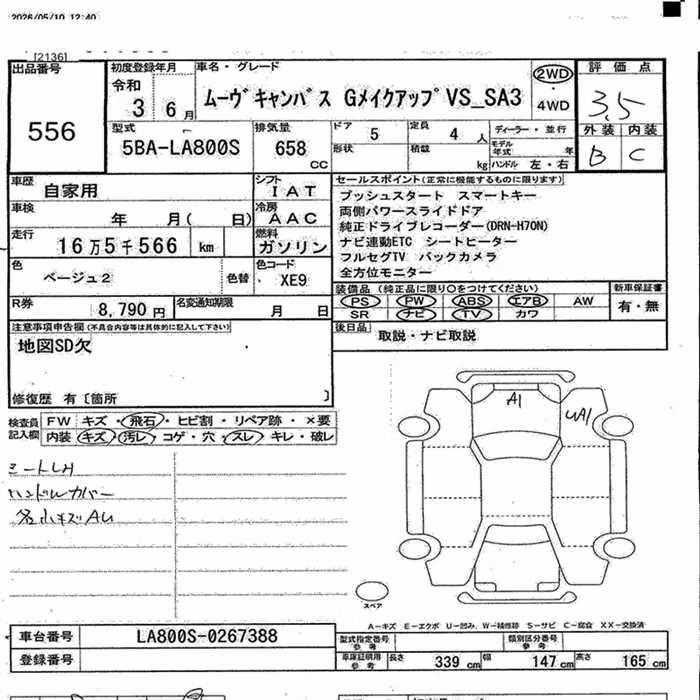 2026/05/10 12:40
[2136]
出品番号
556
初度登録年月
令和
3 6月
車名・グレード
ムーヴキャンバス GメイクアップVS_SA3
2WD
・
4WD
評価点
3,5
外装 内装
B C
型式
5BA-LA800S
排気量
658
CC
ドア 5
定員 4 人
形状
積載 kg
ディーラー・並行
モデル年式 年
ハンドル 左・右
車歴
自家用
シフト
IAT
車検
年 月( 日)
冷房
AAC
走行
16万5千566 km
燃料
ガソリン
色
ベージュ2
色替
色コード
XE9
R券
8,790円
名変通知期限
月 日
セールスポイント(正常に機能するものに限ります)
プッシュスタート スマートキー
両側パワースライドドア
純正ドライブレコーダー(DRN-H70N)
ナビ連動ETC シートヒーター
フルセグTV バックカメラ
全方位モニター
装備品(純正品に限り○をつけてください)
PS PW ABS エアB AW
SR ナビ TV カワ
新車保証書
有・無
後日品
取説・ナビ取説
注意事項申告欄(不具合内容等は具体的に記入して下さい)
地図SD欠
修復歴 有〔箇所 〕
検査員記入欄
FW キズ・飛石・ヒビ割・リペア跡・×要
内装 キズ・汚レ・コゲ・穴・スレ・キレ・破レ
シートLH
ハンドルカバー
各小キズAU
A1
UA1
スペア
A―キズ E―エクボ U―凹み W―補修跡 S―サビ C―腐食 XX―交換済
車台番号
LA800S-0267388
登録番号
型式指定番号 参考
類別区分番号 参考
車庫証明用 参考
長さ 339 cm
幅 147 cm
高さ 165 cm